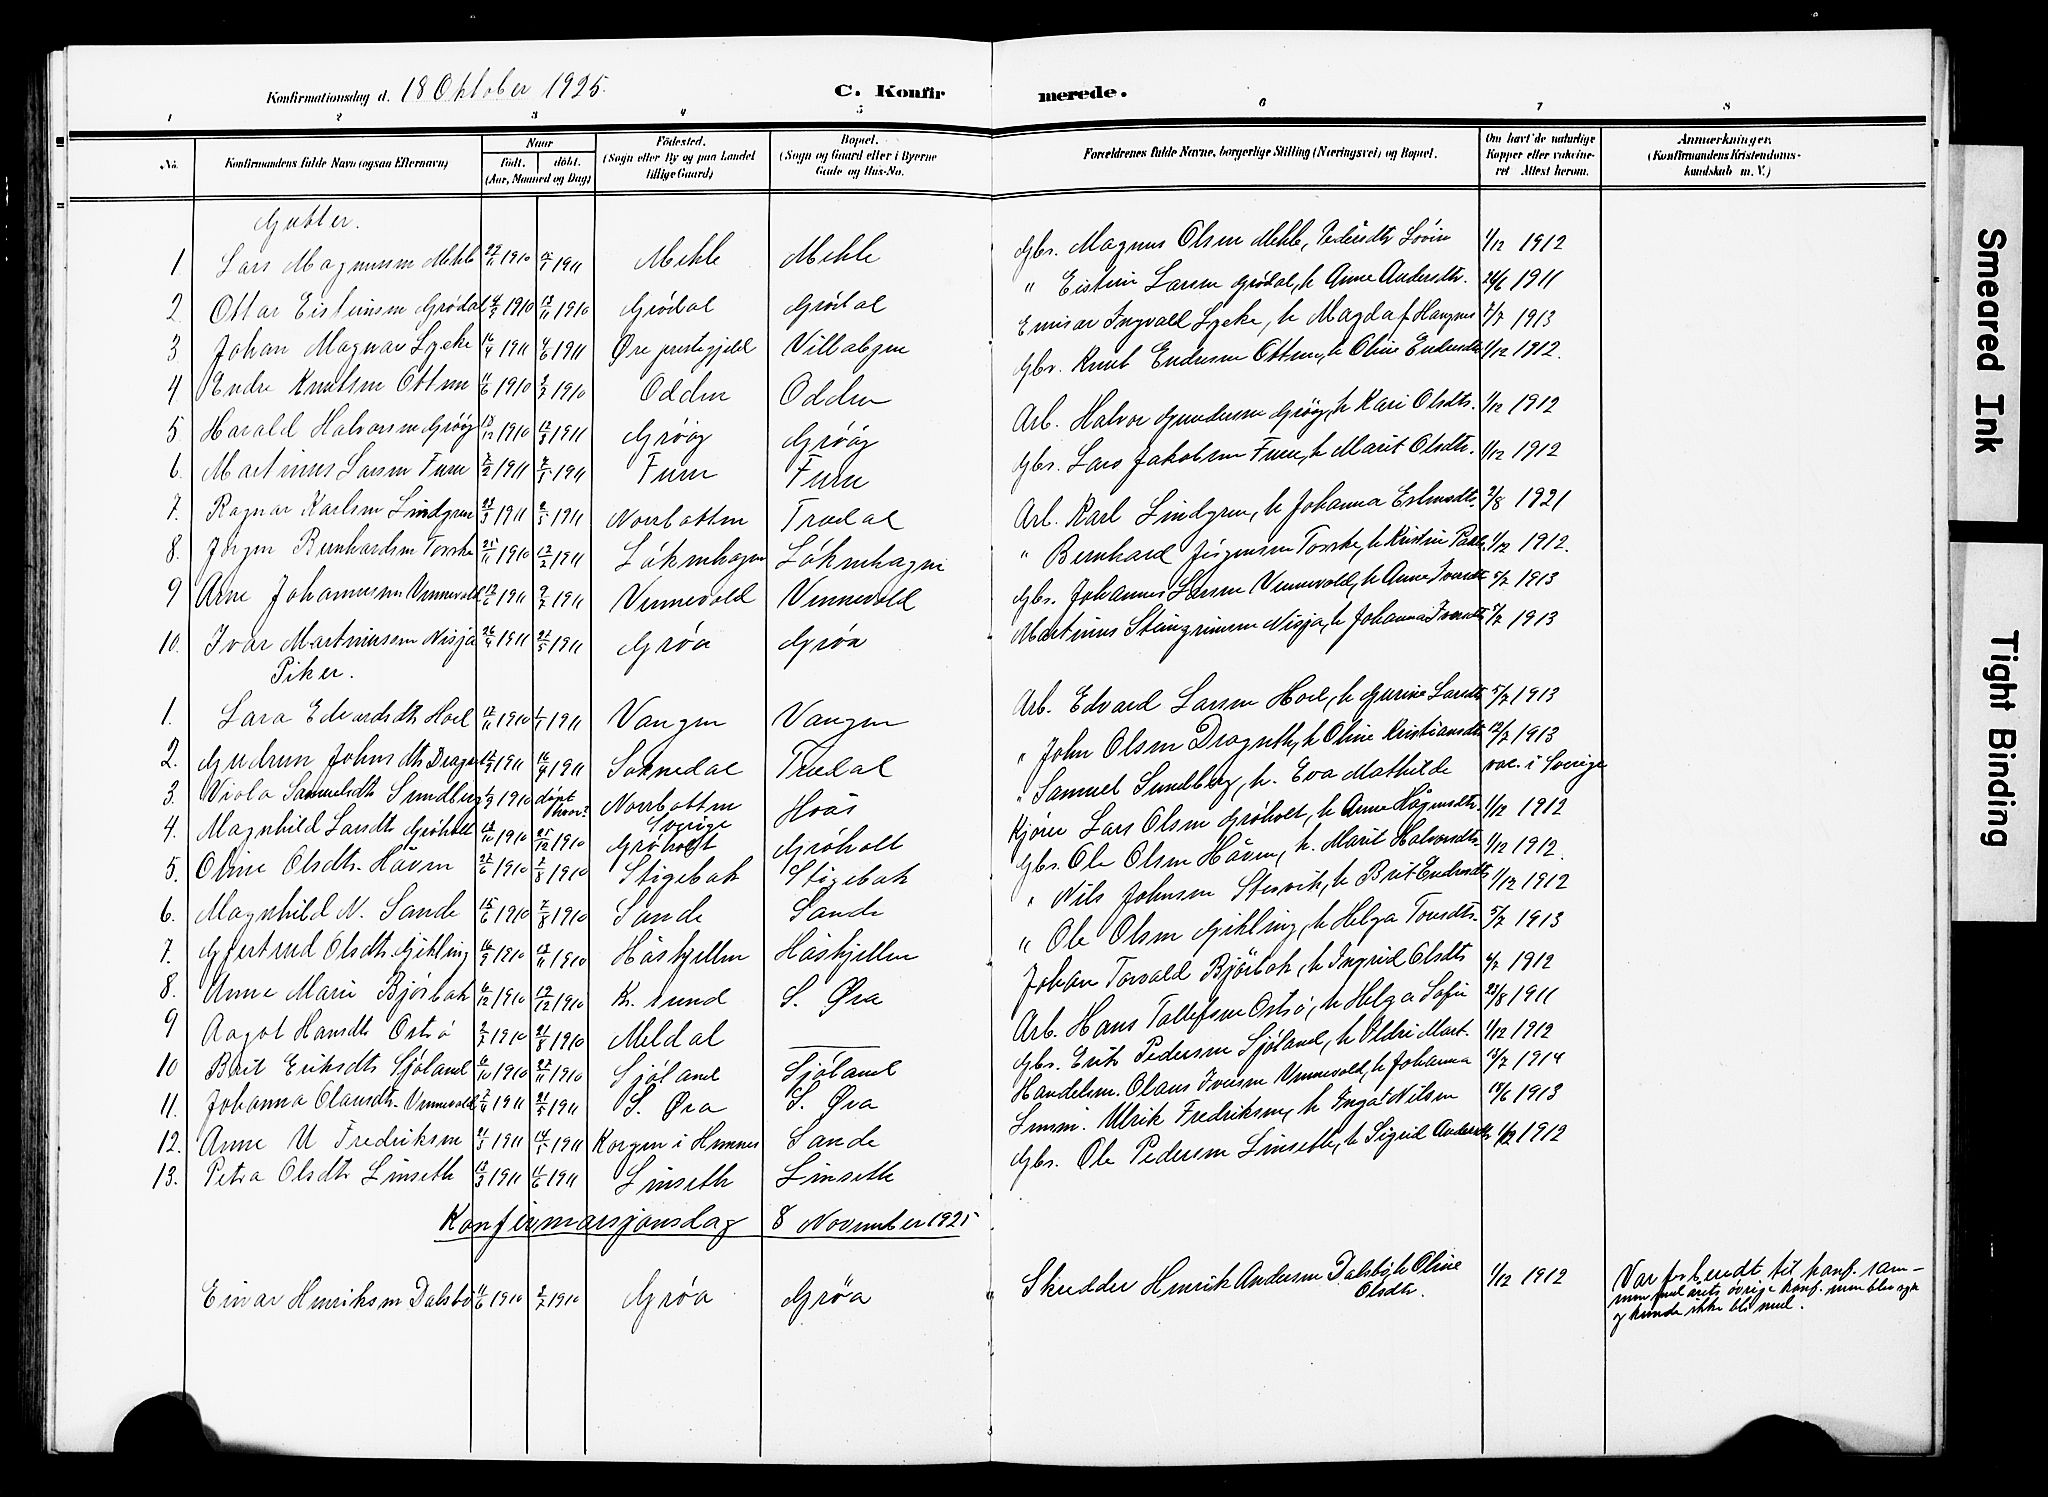 Konfirmationsdag d. 18 Oktober 1925. C. Konfirmerede.
1 2 3 4 5 6 7 8
No. Konfirmandens fulde Navn (ogsaa Efternavn) Naar født. døbt. (Aar, Maaned og Dag) Fødested. (Sogn eller By og paa Landet tillige Gaard) Bopæl. (Sogn og Gaard eller i Byerne Gade og Hus-No. Forældrenes fulde Navne, borgerlige Stilling (Næringsvei) og Bopæl. Om havt de naturlige Kopper eller vakcineret Attest herom. Anmærkninger. (Konfirmandens Kristendomskundskab m. V.)
Gutter.
1 Lars Magnussen Mehle 1910 1911 Mehle Mehle Gbr. Magnus Olsen Mehle, 1/12 1912
2 Ottar Eisteinsen Grødal 1910 13/11 1910 Grødal Grødal " Eistein Larsen Grødal, h Anne Andersdtr. 24/6 1911
3 Johan Magnar Lyeke 1911 4/6 1911 Øre prestegjeld Villabyen Emisær Ingvald Lyeke, h Magda f Haugnes 7/7 1913
4 Endre Knutsen Otten 11/6 1910 3/7 1910 Odden Odden Gbr. Knut Endresen Otten, h Oline Endresdtr 1/12 1912.
5 Harald Halvorsen Grøøg 1910 12/3 1911 Grøøg Grøøg Arb. Halvor Gundersen Grøøg, h Kari Olsdtr. 1/12 1912
6 Martinus Larsen Furu 7/2 1911 1911 Furu Furu Gbr. Lars Jakobsen Furu, h Marit Olsdtr. 1/12 1912
7. Ragnar Karlsen Lindgren 23/3 1911 1911 Norrbotten Tredal Arb. Karl Lindgren, h Johanna 2/8 1921
8. Jørgen Bernhardsen Torske 25/11 1910 12/2 1911 Løkenhagen Løkenhagen " Bernhard Jørgensen Torske, h Kristin 1/12 1912.
9 Arne Johannessen Vennevold 1911 9/7 1911 Vennevold Vennevold Gbr. Johannes Larsen Vennevold, h Anne Iversdtr 5/7 1913
10. Ivar Martinussen Nisja 26/4 1911 21/5 1911 Grøa Grøa Martinus Steingrimsen Nisja, h Johanna Iversdtr 5/7 1913
Piker.
1. Lara Edvardsdtr Hoel 1910 1/1 1911 Vangen Vangen Arb. Edvard Larsen Hoel, h Gurine Larsdtr 5/7 1913
2. Gudrun Johnsdtr Dragn 1911 16/4 1911 Soknedal Tredal " John Olsen Dragneth, h Oline Kristiansdtr 12/7 1913
3. Viola Samuelsdtr Sundberg 1/9 1910 døpt hvor? Norrbotten Sverige Hoås " Samuel Sundberg, h. Eva Mathilde vac. i Sverige
4. Magnhild Larsdtr Grøholt 1910 25/12 1910 Grøholt Grøholt Kjører Lars Olsen Grøholt, h Anne Hågensdtr. 1/12 1912
5. Oline Olsdtr. Håven 22/6 1910 7/8 1910 Stigebak Stigebak Gbr. Ole Olsen Håven, h. Marit Halvorsdtr. 1/12 1912.
6. Magnhild N. Sande 15/6 1910 7/8 1910 Sande Sande " Nils Johnsen Stervik, h Brit Endresdtr 1/12 1912
7. Gjertrud Olsdtr. Gikling 16/9 1910 13/11 1910 Håskjellen Håskjellen " Ole Olsen Gikling, h Helga Toresdtr. 5/7 1913
8. Anne Marie Bjørbak 1910 1910 Kr. sund S. Øra Johan Torvald Bjørbak, h Ingrid Olsdtr 4/2 1912
9 Aagot Hansdtr Ostrø 2/7 1910 21/8 1910 Meldal — Arb. Hans Tollefsen Ostrø, h Helga Sofie 23/8 1911
10 Brit Eriksdtr Sjøland 1910 27/11 1910 Sjøland Sjøland Gbr. Erik Pedersen Sjøland, h Eldri Mart. 1/12 1912
11. Johanna Olausdtr. Vennevold 2/4 1911 21/5 1911 S. Øra S. Øra Handelsm. Olaus Iversen Vennevold, h Johanna 1914
12. Anne U Fredriksen 21/3 1911 14/5 1911 Korgen i Hemnes Sande Lensm. Ulrik Fredriksen, h Inga Nilsen 1913
13. Petra Olsdtr Linseth 1911 1911 Linseth Linseth Gbr. Ole Pedersen Linseth, h Sigrid Andersdtr 1/12 1912
Konfirmasjonsdag 8 November 1925
Einar Henriksen Dalsbø 11/6 1910 3/7 1910 Grøa Grøa Skredder Henrik Andersen Dalsbø, h Oline Olsdtr. 1/12 1912 Var forberedt til konf. sam-
men med årets øvrige konf. men blev syk
og kunde ikke bli med.
Smeared Ink
Tight Binding